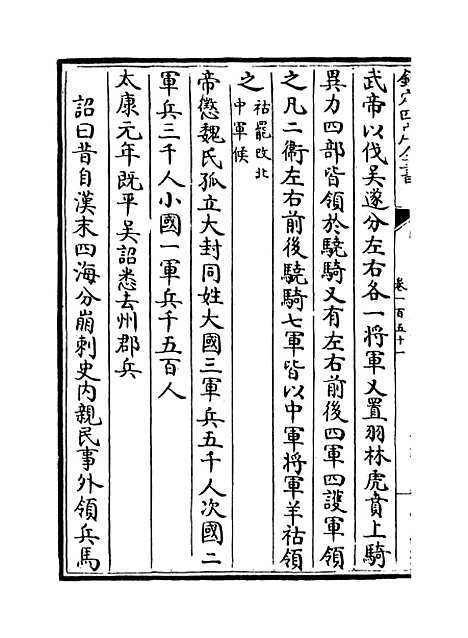 欽定四庫全書
卷一百五十一
武帝以伐吳遂分左右各一將軍又置羽林虎賁上騎
異力四部皆領於驍騎又有左右前後四軍四護軍領
之凡二衞左右前後驍騎七軍皆以中軍將軍羊祜領
之祜罷改北
中軍候
帝懲魏氏孤立大封同姓大國三軍兵五千人次國二
軍兵三千人小國一軍兵千五百人
太康元年既平吳詔悉去州郡兵
詔曰昔自漢末四海分崩刺史內親民事外領兵馬